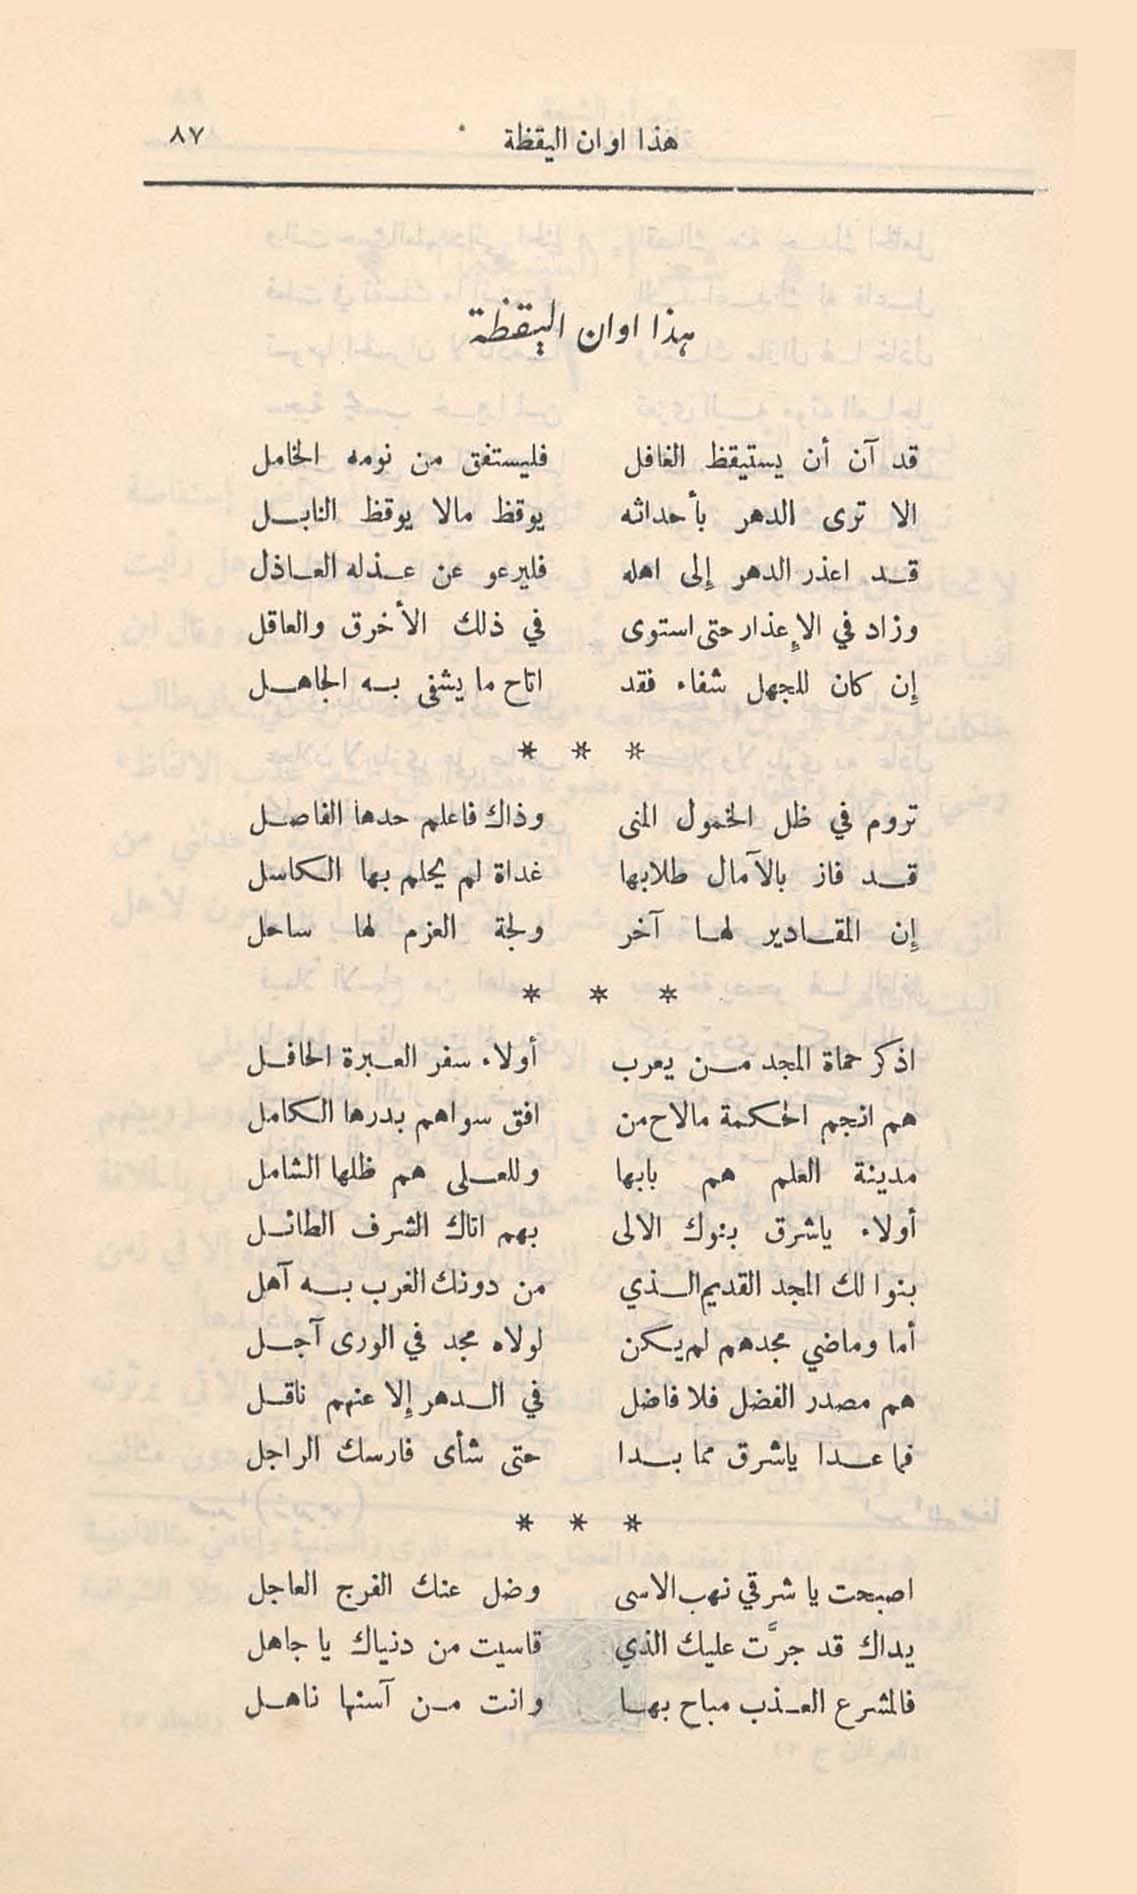 هذا اوان اليقظة ٨٧
هذا اوان اليقظة
قد آن أن يستيقظ الغافل فليستفق من نومه الخامل
الا ترى الدهر بأحداثه يوقظ مالا يوقظ النابل
قد اعذر الدهر إلى اهله فليرعو عن عذله العاذل
وزاد في الإعذار حتى استوى في ذلك الأخرق والعاقل
إن كان للجهل شفاء فقد اتاح ما يشفى به الجاهل
* * *
تروم في ظل الخمول المنى وذاك فاعلم حدها الفاصل
قد فاز بالآمال طلابها غداة لم يحلم بها الكاسل
إن المقادير لها آخر ولجة العزم لها ساحل
* * *
اذكر حماة المجد من يعرب أولاء سفر العبرة الحافل
هم انجم الحكمة مالاح من افق سواهم بدرها الكامل
مدينة العلم هم بابها وللعلى هم ظلها الشامل
أولاء ياشرق بنوك الالى بهم اتاك الشرف الطائل
بنوا لك المجد القديم الذي من دونك الغرب به آهل
أما وماضي مجدهم لم يكن لولاه مجد في الورى آجل
هم مصدر الفضل فلا فاضل في الدهر إلا عنهم ناقل
فما عدا ياشرق مما بدا حتى شأى فارسك الراجل
* * *
اصبحت يا شرقي نهب الاسى وضل عنك الفرج العاجل
يداك قد جرَّت عليك الذي قاسيت من دنياك يا جاهل
فالمشرع العذب مباح بها وانت من آسنها ناهل